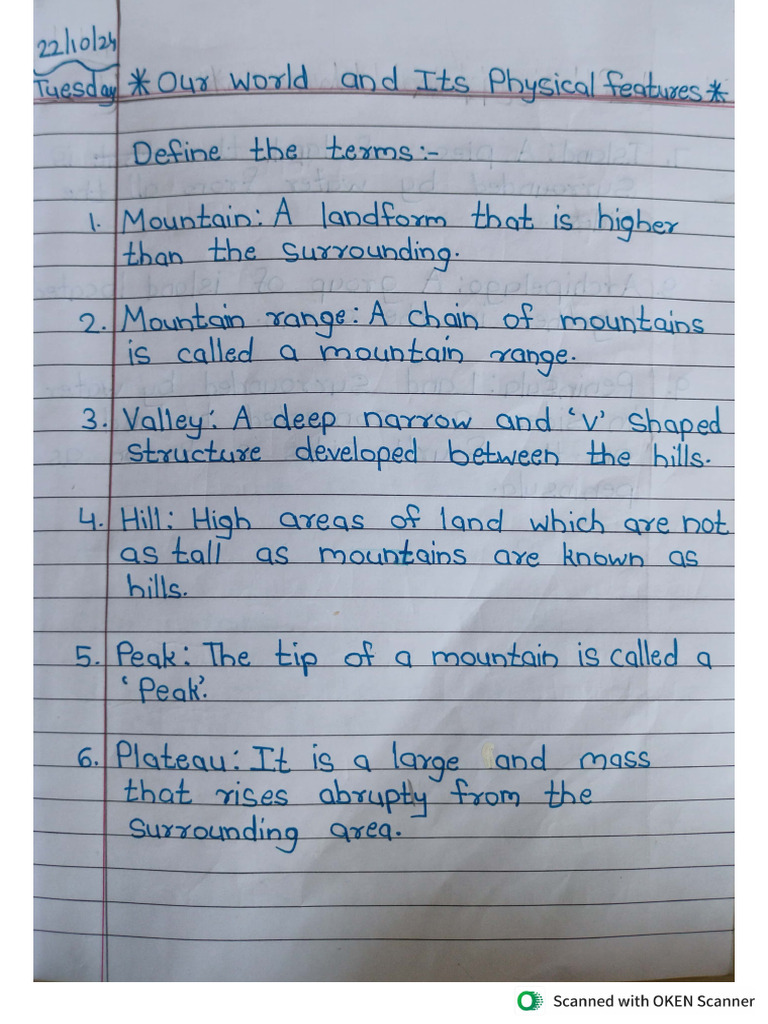 22/10/24
Tuesday * Our world and Its Physical features *
Define the terms:-
1. Mountain: A landform that is higher
than the surrounding.
2. Mountain range: A chain of mountains
is called a mountain range.
3. Valley: A deep narrow and 'v' shaped
structure developed between the hills.
4. Hill: High areas of land which are not
as tall as mountains are known as
hills.
5. Peak: The tip of a mountain is called a
'Peak'.
6. Plateau: It is a large land mass
that rises abrupty from the
surrounding area.
Scanned with OKEN Scanner